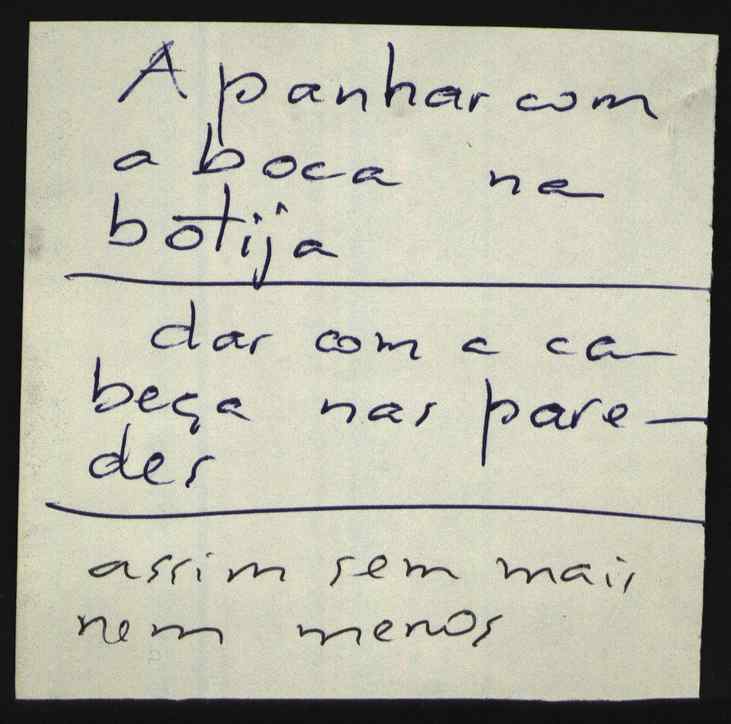 Apanhar com
a boca na
botija
dar com a ca-
beça nas pare-
des
assim sem mais
nem menos